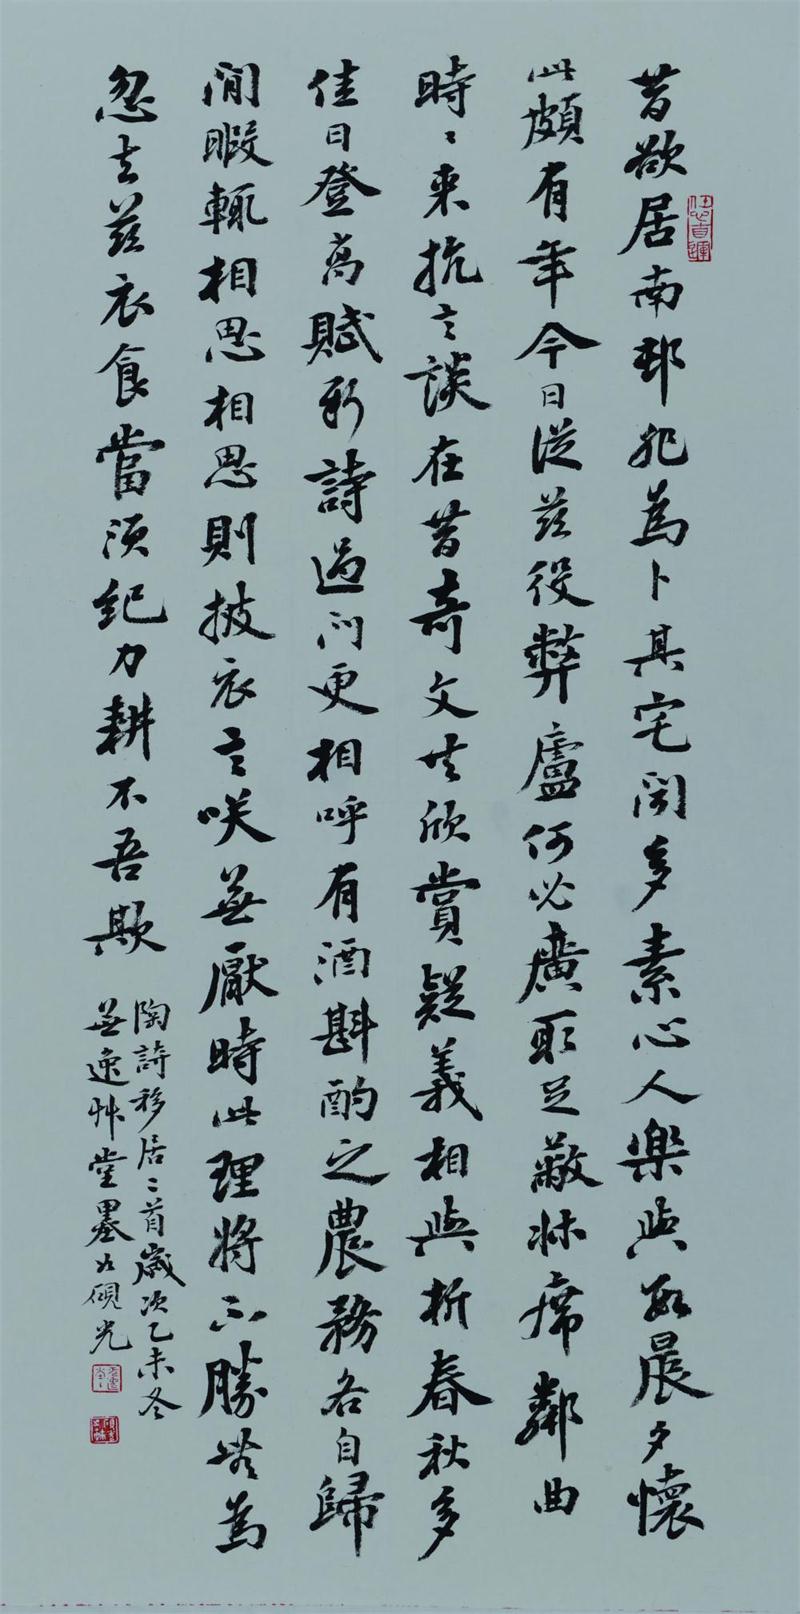 昔欲居南邨非為卜其宅聞多素心人樂與數晨夕懷
此頗有年今日從茲役弊廬何必廣取足蔽牀席鄰曲
時〻來抗言談在昔奇文共欣賞疑義相與析春秋多
佳日登高賦新詩過門更相呼有酒斟酌之農務各自歸
閒暇輒相思相思則披衣言咲無厭時此理將不勝無為
忽去茲衣食當須紀力耕不吾欺
陶詩移居二首歲次乙未冬
無逸艸堂墨硯光